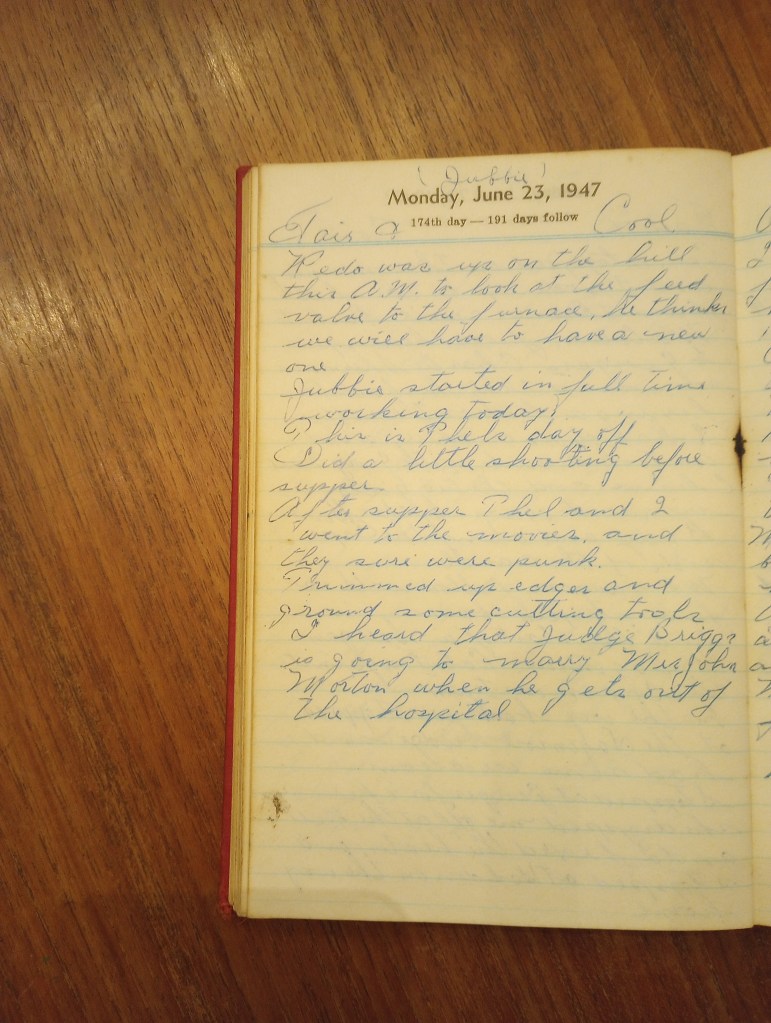 ( Jubbie )
Monday, June 23, 1947
174th day — 191 days follow
Fair & Cool
Kedo was up on the hill
this A.M. to look at the feed
valve to the furnace, he thinks
we will have to have a new
one
Jubbie started in full time
working today.
This is Phels day off
Did a little shooting before
supper.
After supper Phel and I
went to the movies, and
they sure were punk.
Trimmed up edges and
ground some cutting tools
I heard that Judge Briggs
is going to marry Mrs John
Morton when he gets out of
the hospital